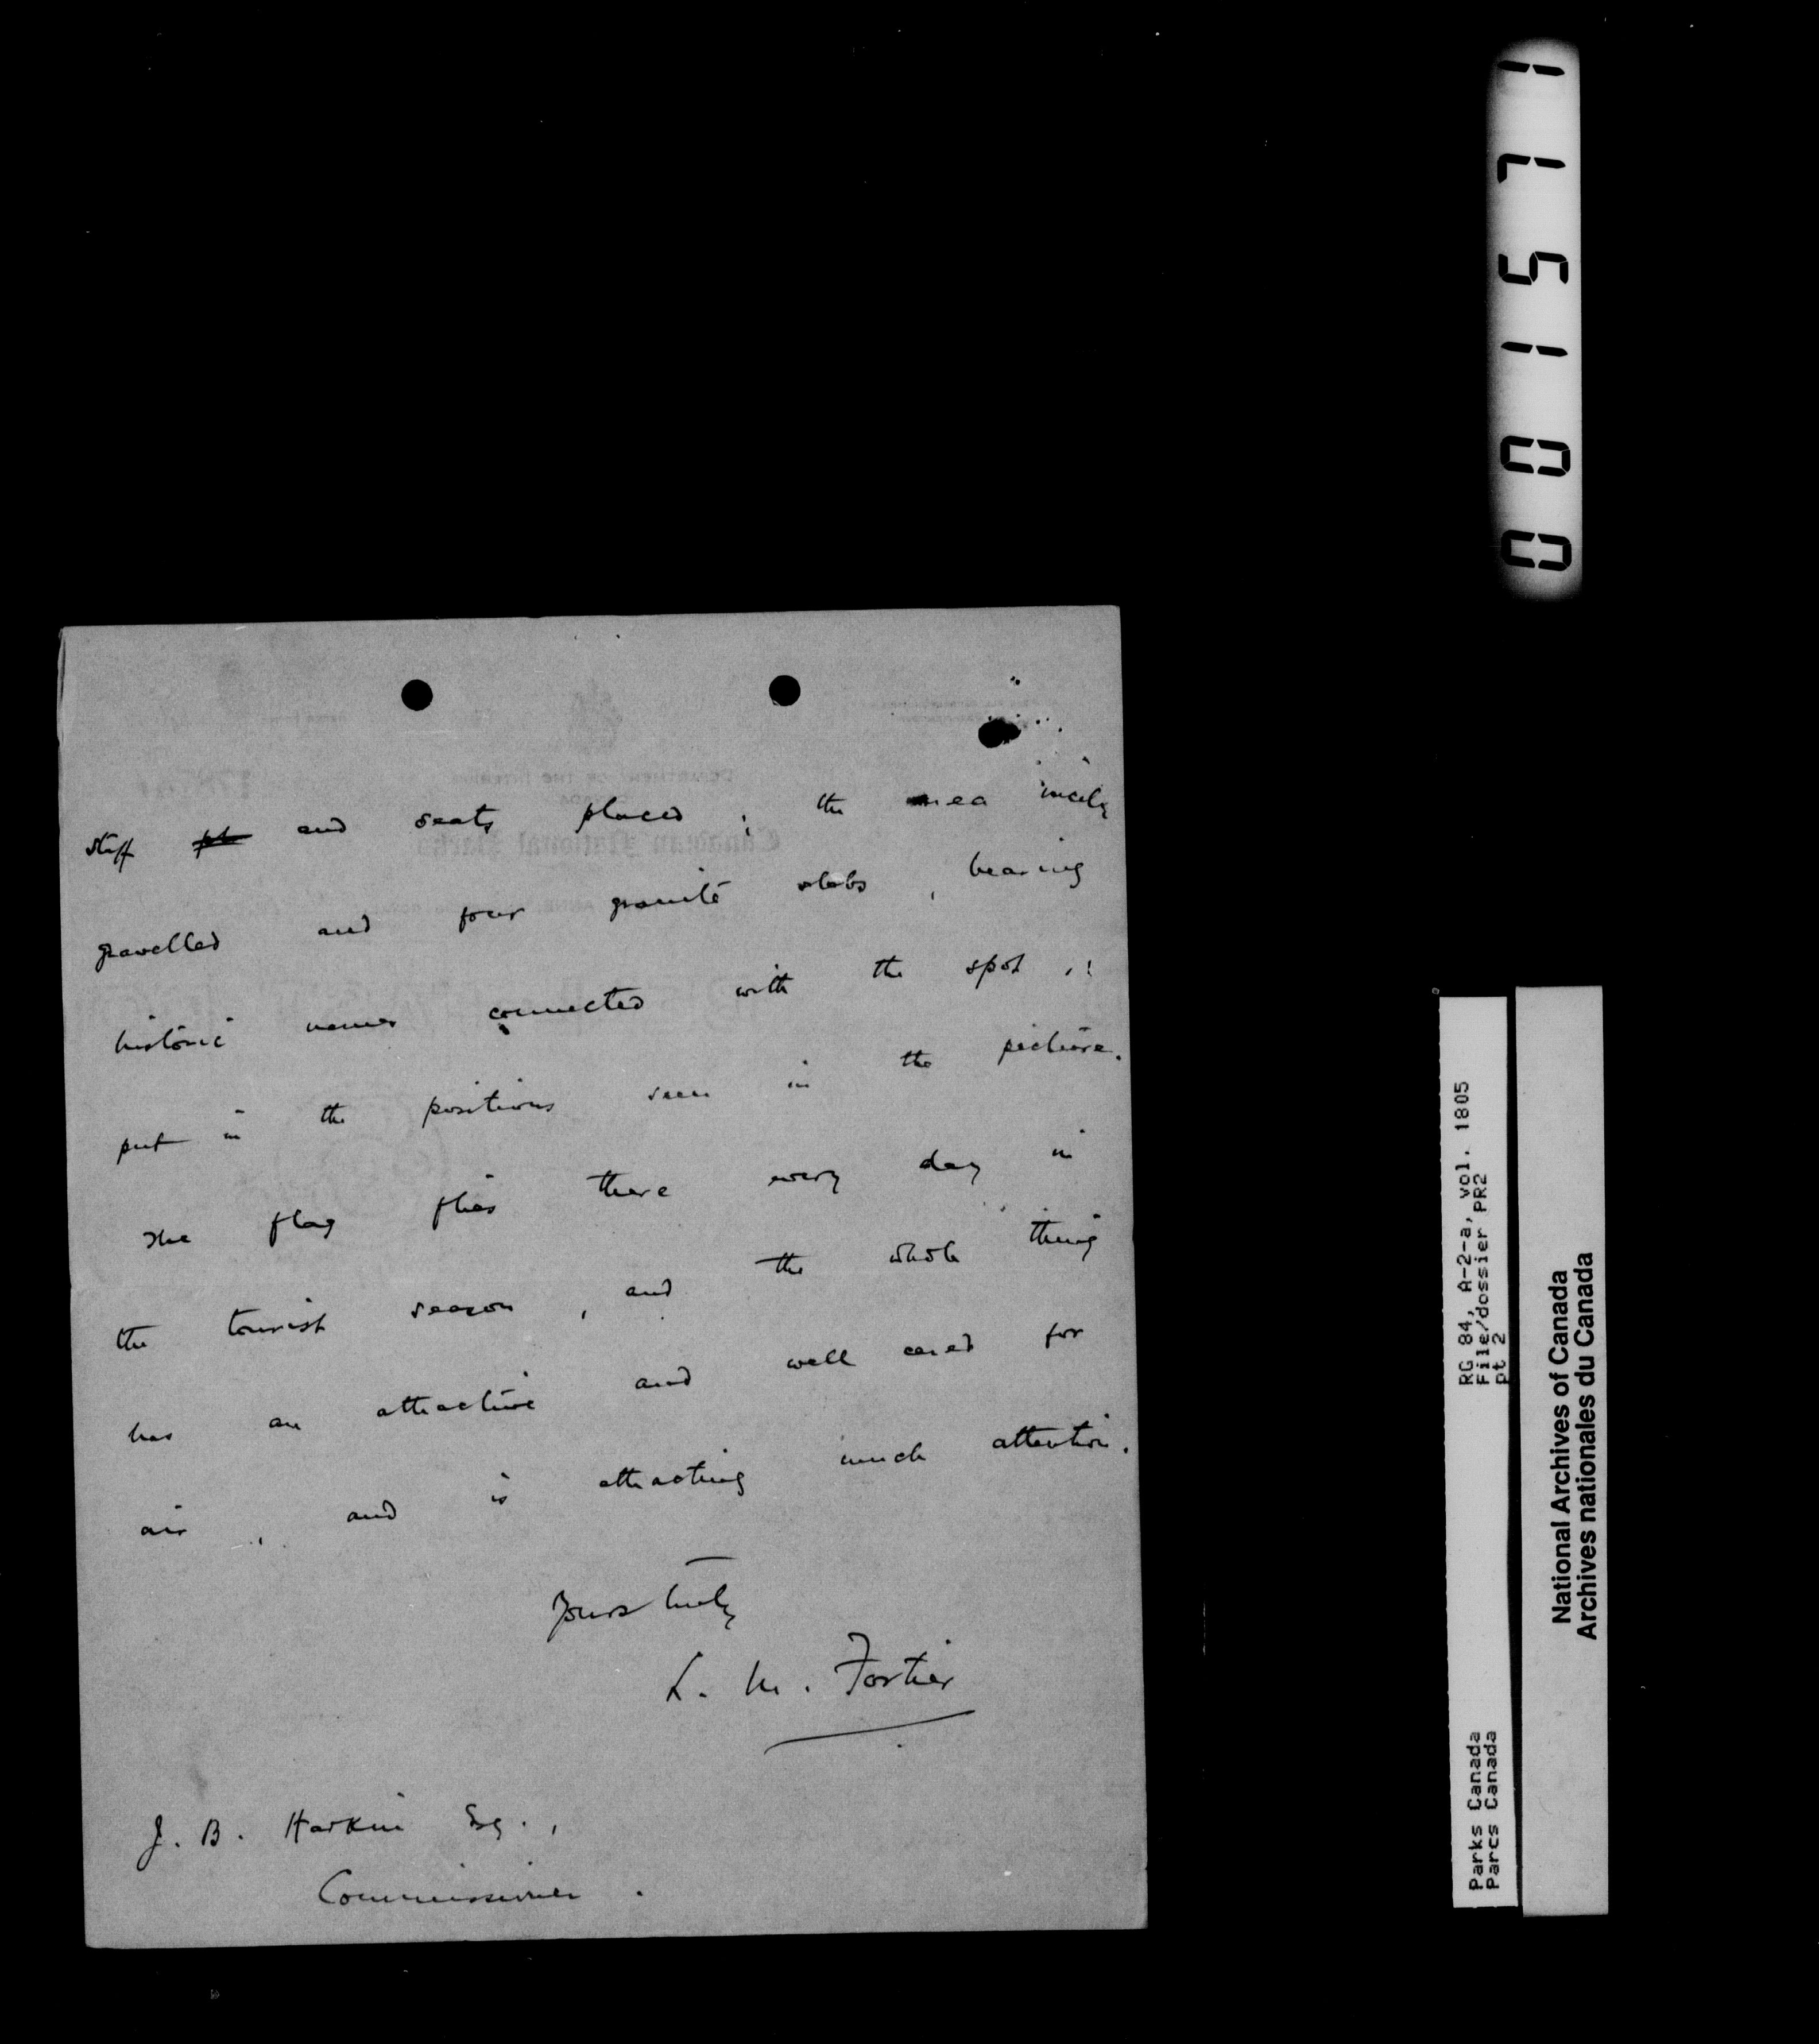 stiff pt and seats placed; the area nicely
gravelled and four granite slabs, bearing
historic names connected with the spot,
put in the positions seen in the picture.
The flag flies there every day in
the tourist season, and the whole thing
has an attractive and well cared for
air, and is attracting much attention.
Yours truly
L. M. Fortier
J. B. Harkin Esq.,
Commissioner.
001571
RG 84, A-2-a, vol. 1805
File/dossier PR2
pt 2
Parks Canada
Parcs Canada
National Archives of Canada
Archives nationales du Canada